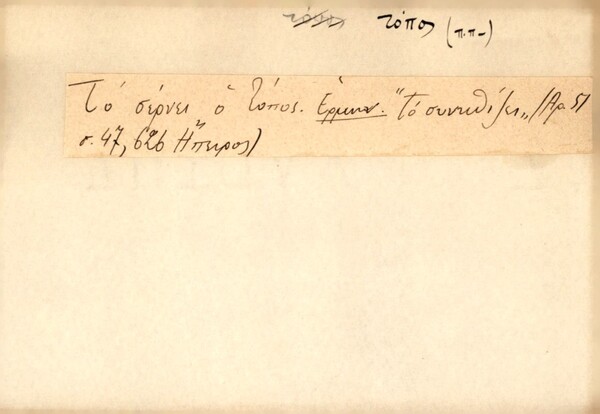 τόπος τόπος (π.π-)
Τό σέρνει ὁ τόπος. Ἑρμην. "Τό συνηθίζει„ (Αρ. 51
σ. 47, 626 Ἤπειρος)